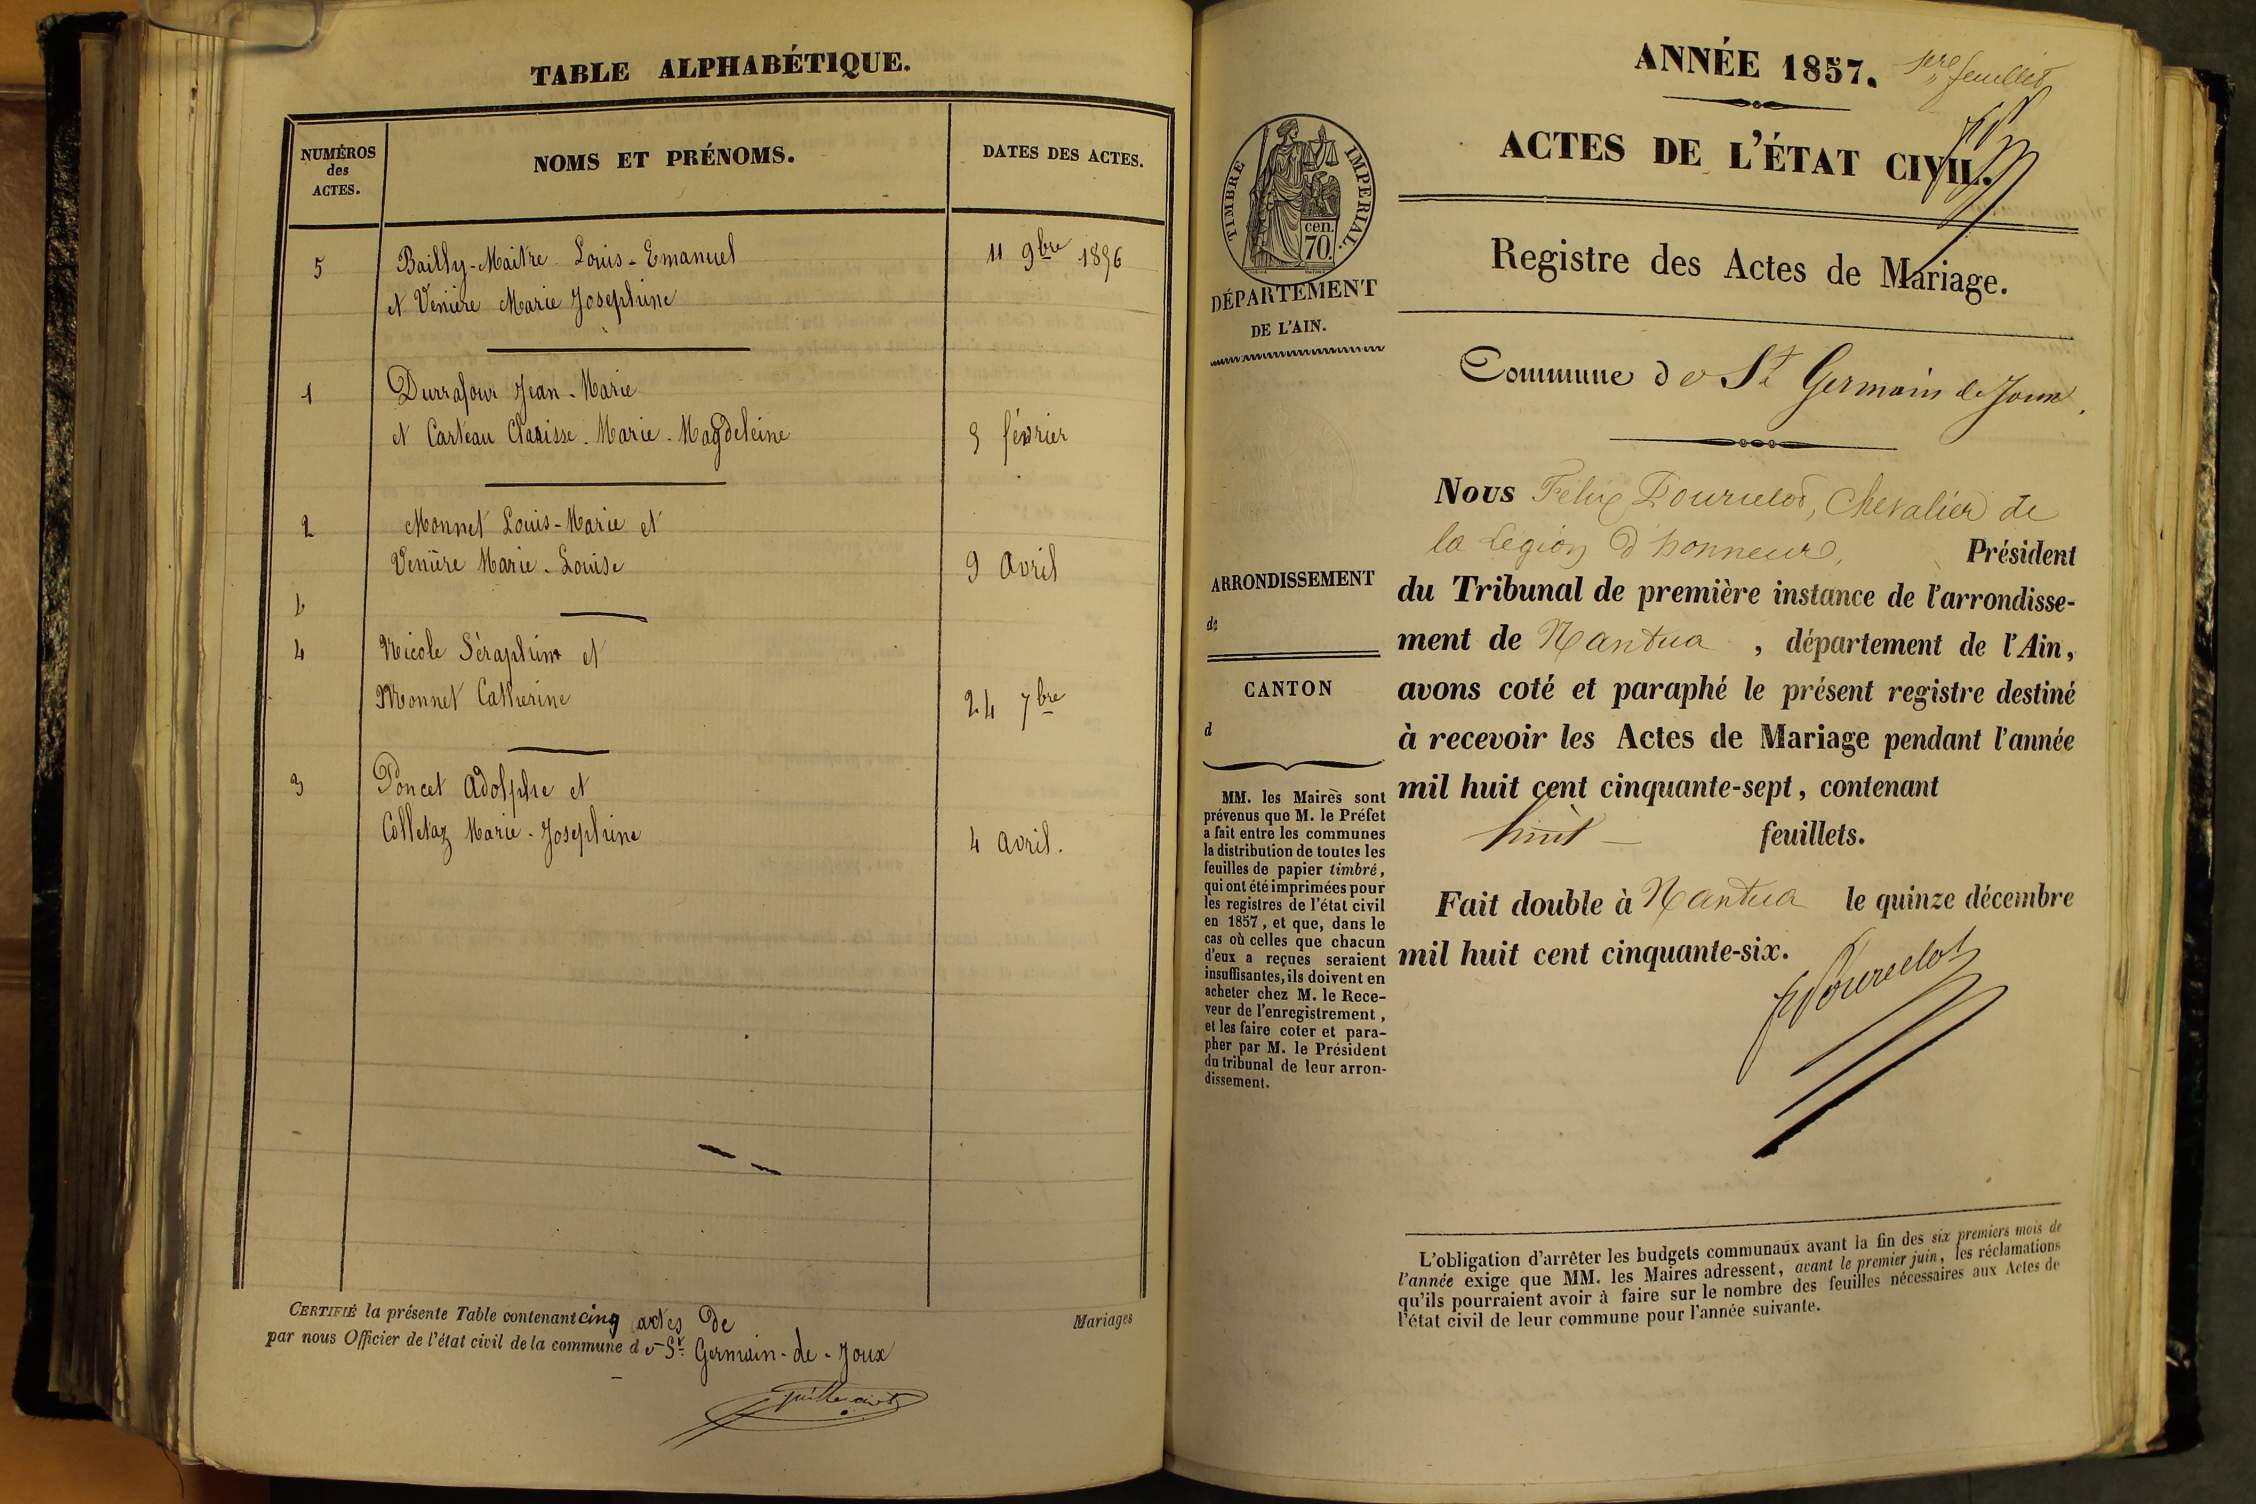 TABLE ALPHABÉTIQUE.
NUMÉROS des ACTES.
NOMS ET PRÉNOMS.
DATES DES ACTES.
5 Bailly-Maitre Louis-Emanuel 11 9bre 1856
et Venière Marie Josephine
1 Durrafour Jean-Marie
et Carteau Clarisse-Marie-Magdeleine 3 février
2 Monnet Louis-Marie et
Venière Marie-Louise 9 avril
4 Nicole Séraphin et
Monnet Catherine 24 7bre
3 Poncet Adolphe et
Colletaz Marie-Josephine 4 avril.
CERTIFIÉ la présente Table contenant cinq actes De Mariages
par nous Officier de l'état civil de la commune de St Germain-de-Joux
ANNÉE 1857. 1er feuillet
ACTES DE L'ÉTAT CIVIL.
Registre des Actes de Mariage.
TIMBRE IMPERIAL.
cen.
70.
DÉPARTEMENT
DE L'AIN.
Commune de St Germain de Joux.
Nous Félix Pourcelot, Chevalier de
la Légion d'honneur, Président
du Tribunal de première instance de l'arrondisse-
ment de Nantua, département de l'Ain,
avons coté et paraphé le présent registre destiné
à recevoir les Actes de Mariage pendant l'année
mil huit cent cinquante-sept, contenant
huit feuillets.
Fait double à Nantua le quinze décembre
mil huit cent cinquante-six.
Pourcelot
ARRONDISSEMENT
de
CANTON
d
MM. les Maires sont
prévenus que M. le Préfet
a fait entre les communes
la distribution de toutes les
feuilles de papier timbré,
qui ont été imprimées pour
les registres de l'état civil
en 1857, et que, dans le
cas où celles que chacun
d'eux a reçues seraient
insuffisantes, ils doivent en
acheter chez M. le Rece-
veur de l'enregistrement,
et les faire coter et para-
pher par M. le Président
du tribunal de leur arron-
dissement.
L'obligation d'arrêter les budgets communaux avant la fin des six premiers mois de
l'année exige que MM. les Maires adressent, avant le premier juin, les réclamations
qu'ils pourraient avoir à faire sur le nombre des feuilles nécessaires aux Actes de
l'état civil de leur commune pour l'année suivante.